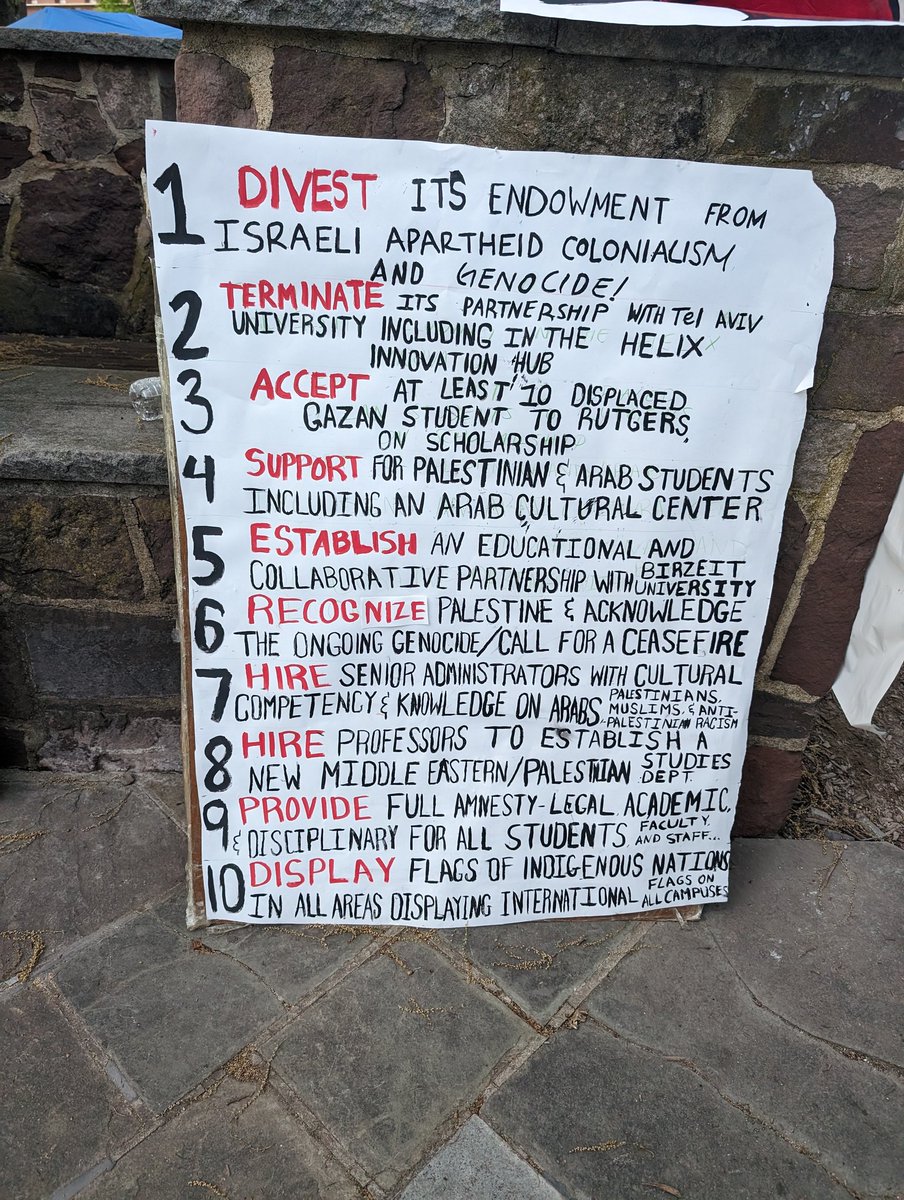 1 DIVEST ITS ENDOWMENT FROM
ISRAELI APARTHEID COLONIALISM
AND GENOCIDE!
2 TERMINATE ITS PARTNERSHIP WITH Tel AVIV
UNIVERSITY INCLUDING IN THE HELIX
INNOVATION HUB
3 ACCEPT AT LEAST 10 DISPLACED
GAZAN STUDENT TO RUTGERS,
ON SCHOLARSHIP
4 SUPPORT FOR PALESTINIAN & ARAB STUDENTS
INCLUDING AN ARAB CULTURAL CENTER
5 ESTABLISH AN EDUCATIONAL AND
COLLABORATIVE PARTNERSHIP WITH BIRZEIT
UNIVERSITY
6 RECOGNIZE PALESTINE & ACKNOWLEDGE
THE ONGOING GENOCIDE/CALL FOR A CEASEFIRE
7 HIRE SENIOR ADMINISTRATORS WITH CULTURAL
COMPETENCY & KNOWLEDGE ON ARABS PALESTINIANS,
MUSLIMS, & ANTI-
PALESTINIAN RACISM
8 HIRE PROFESSORS TO ESTABLISH A
NEW MIDDLE EASTERN/PALESTNIAN STUDIES
DEPT.
9 PROVIDE FULL AMNESTY-LEGAL, ACADEMIC,
& DISCIPLINARY FOR ALL STUDENTS, FACULTY,
AND STAFF...
10 DISPLAY FLAGS OF INDIGENOUS NATIONS
IN ALL AREAS DISPLAYING INTERNATIONAL FLAGS ON
ALL CAMPUSES